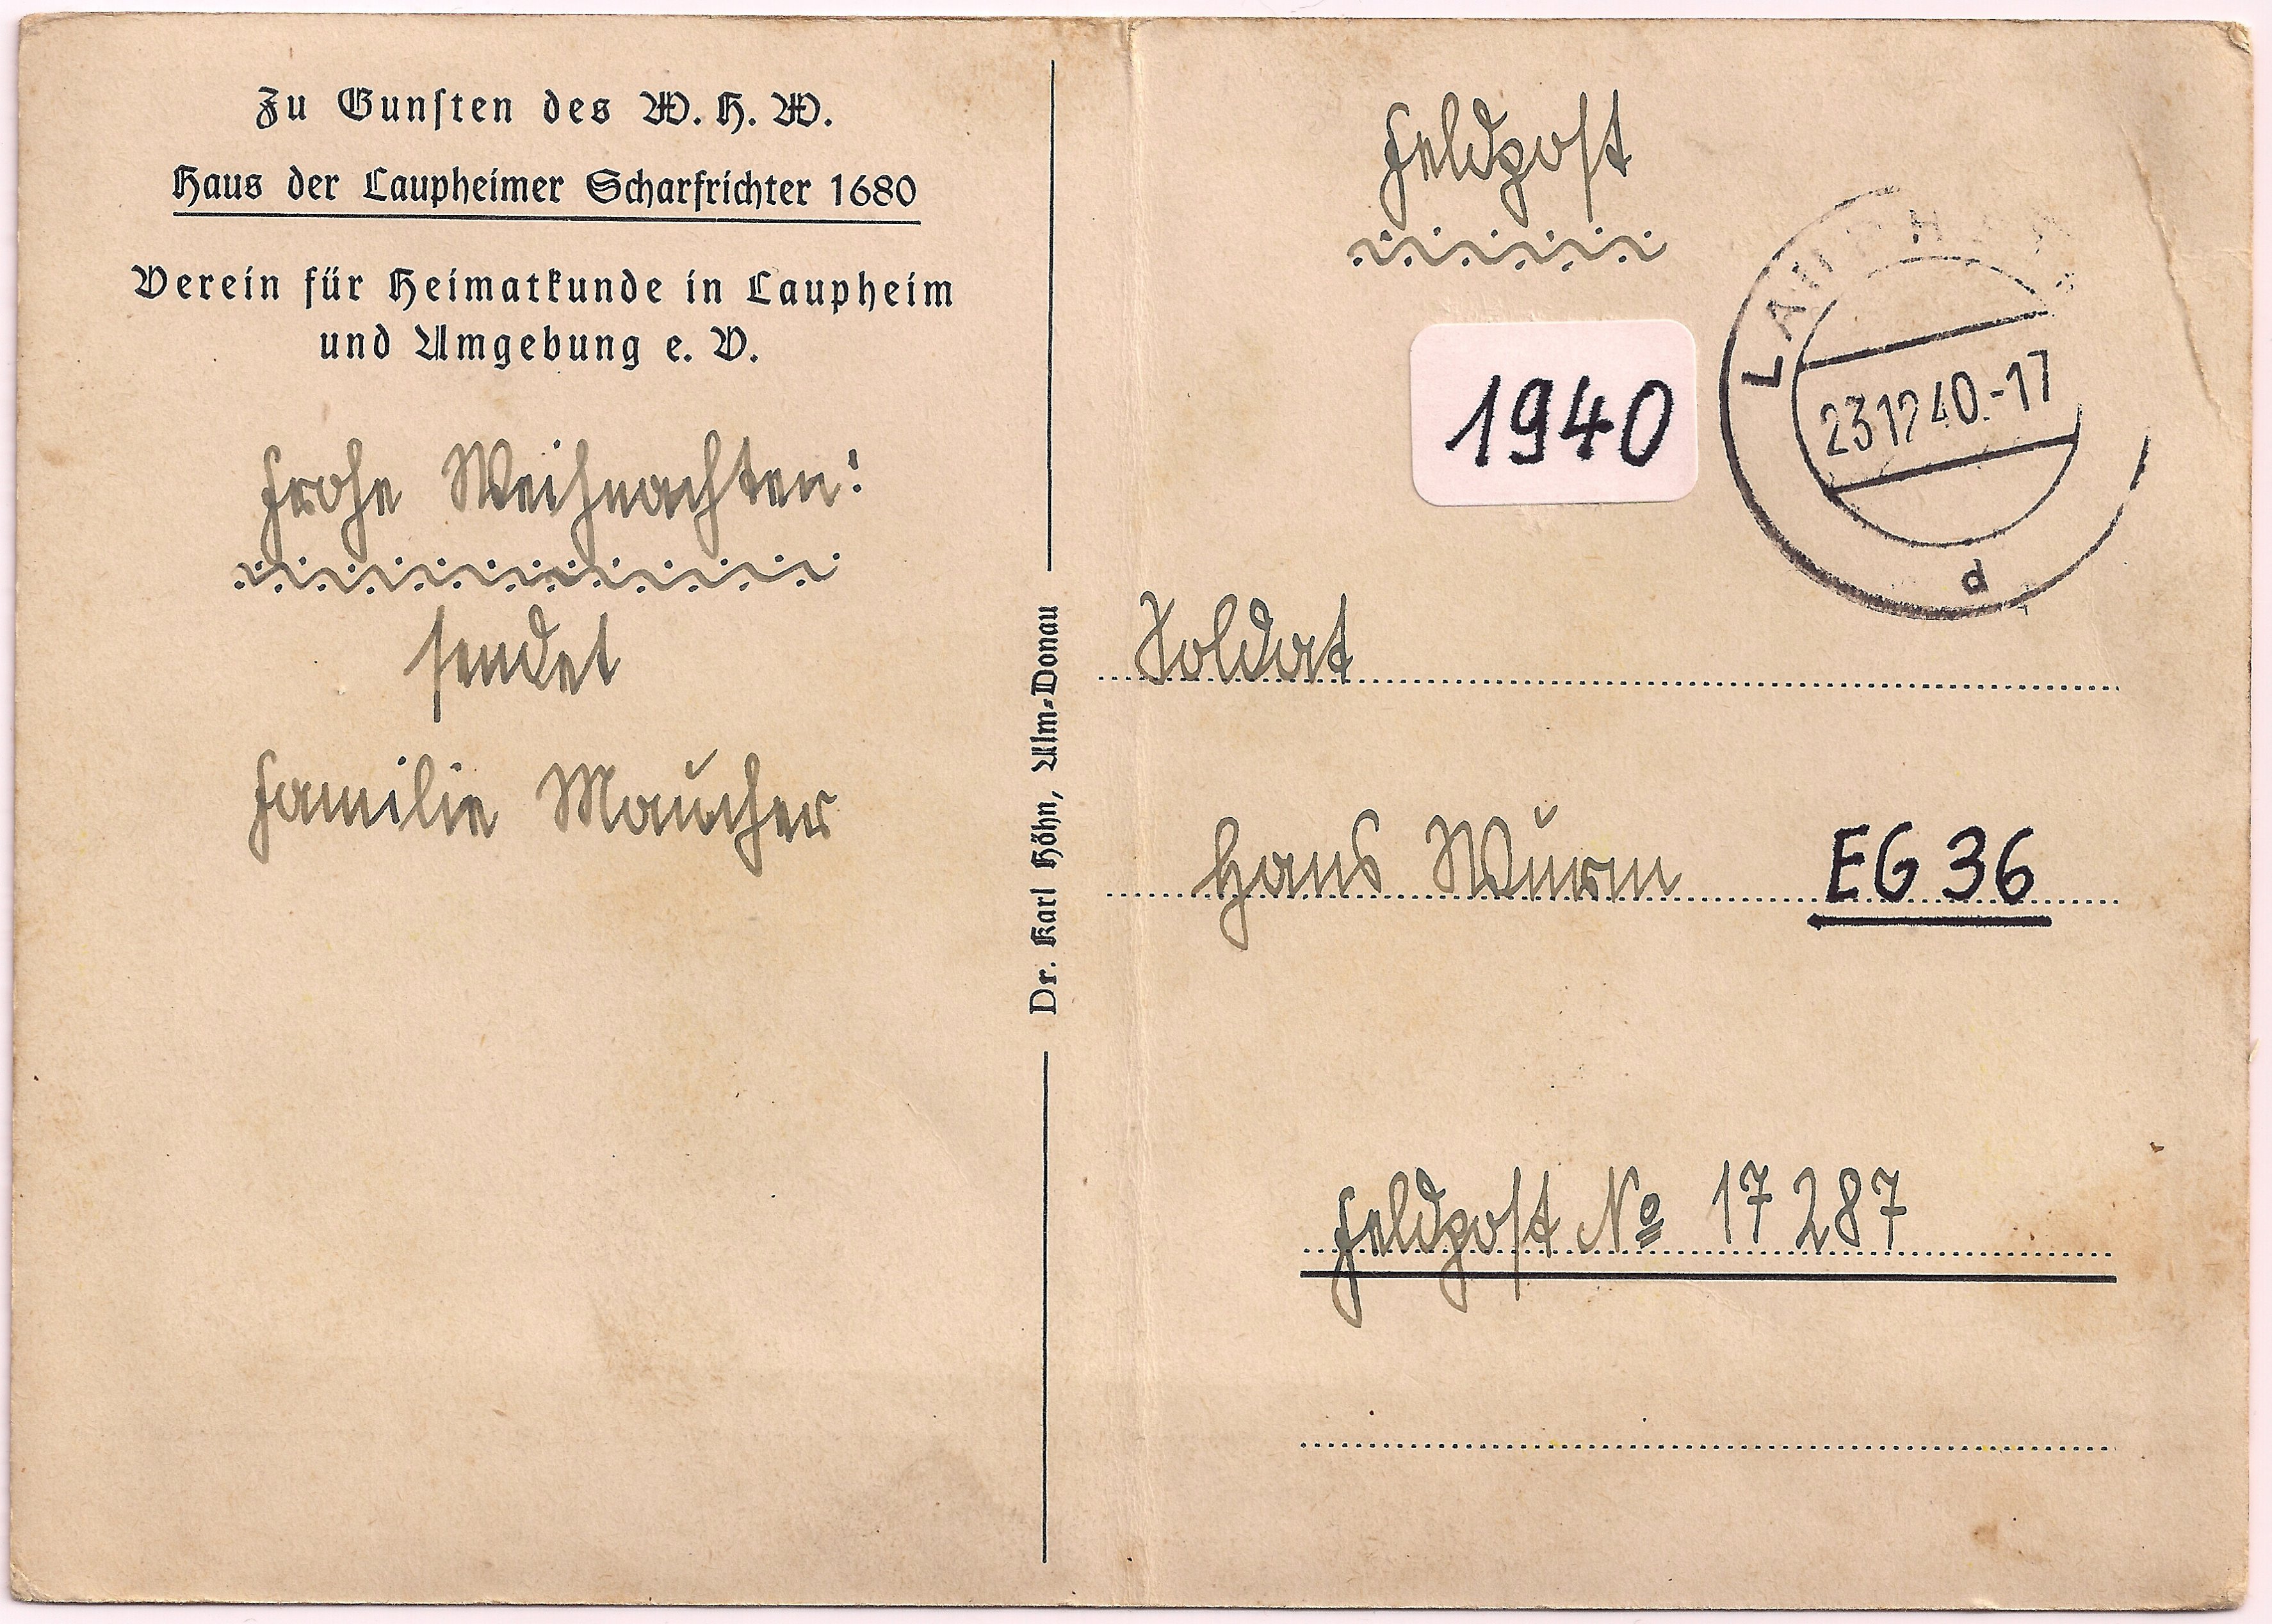 Zu Gunsten des W. H. W.
Haus der Laupheimer Scharfrichter 1680
Verein für Heimatkunde in Laupheim
und Umgebung e. V.
Frohe Weihnachten!
sendet
Familie Maucher
Dr. Karl Höhn, Ulm-Donau
Feldpost
1940
LAUPHEIM
23.12.40.-17
d
Soldat
Hans Wurm EG 36
Feldpost Nº 17 287